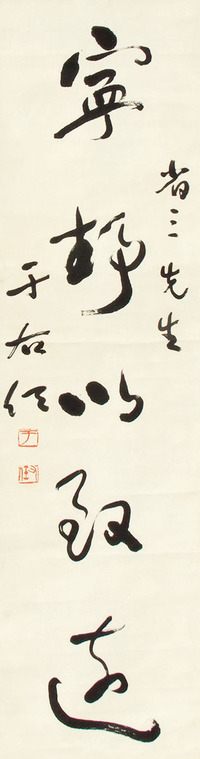 省三先生
寧靜以致遠
于右任